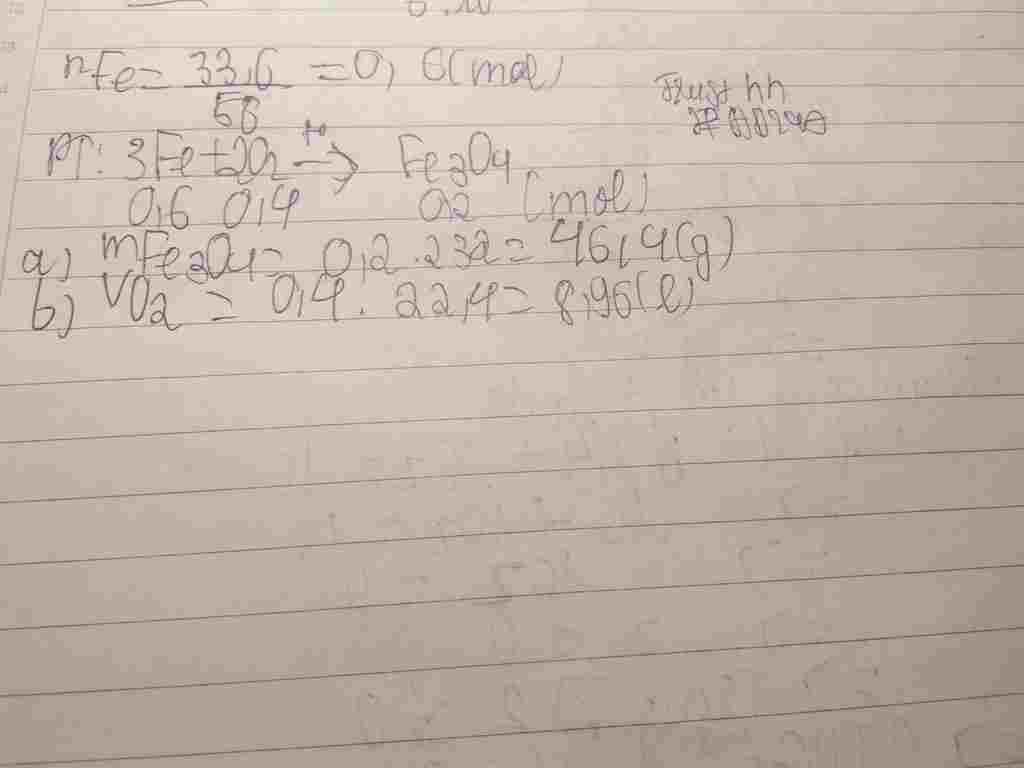 nFe = 33,6 / 56 = 0,6(mol)
PT: 3Fe + 2O2 →t° Fe3O4
0,6 0,4 0,2 (mol)
a) mFe3O4 = 0,2.232 = 46,4(g)
b) VO2 = 0,4 . 22,4 = 8,96(l)